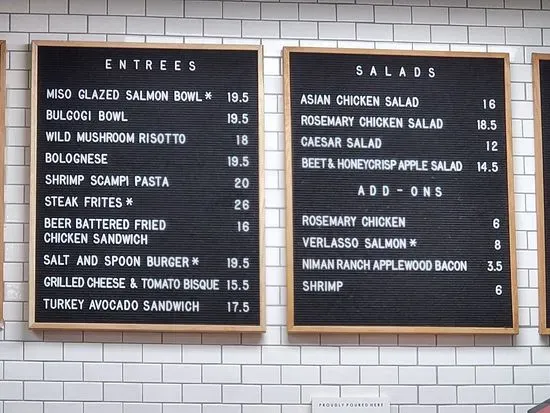 ENTREES
MISO GLAZED SALMON BOWL * 19.5
BULGOGI BOWL 19.5
WILD MUSHROOM RISOTTO 18
BOLOGNESE 19.5
SHRIMP SCAMPI PASTA 20
STEAK FRITES * 26
BEER BATTERED FRIED 16
CHICKEN SANDWICH
SALT AND SPOON BURGER * 19.5
GRILLED CHEESE & TOMATO BISQUE 15.5
TURKEY AVOCADO SANDWICH 17.5
SALADS
ASIAN CHICKEN SALAD 16
ROSEMARY CHICKEN SALAD 18.5
CAESAR SALAD 12
BEET & HONEYCRISP APPLE SALAD 14.5
ADD-ONS
ROSEMARY CHICKEN 6
VERLASSO SALMON * 8
NIMAN RANCH APPLEWOOD BACON 3.5
SHRIMP 6
PROUDLY POURED HERE